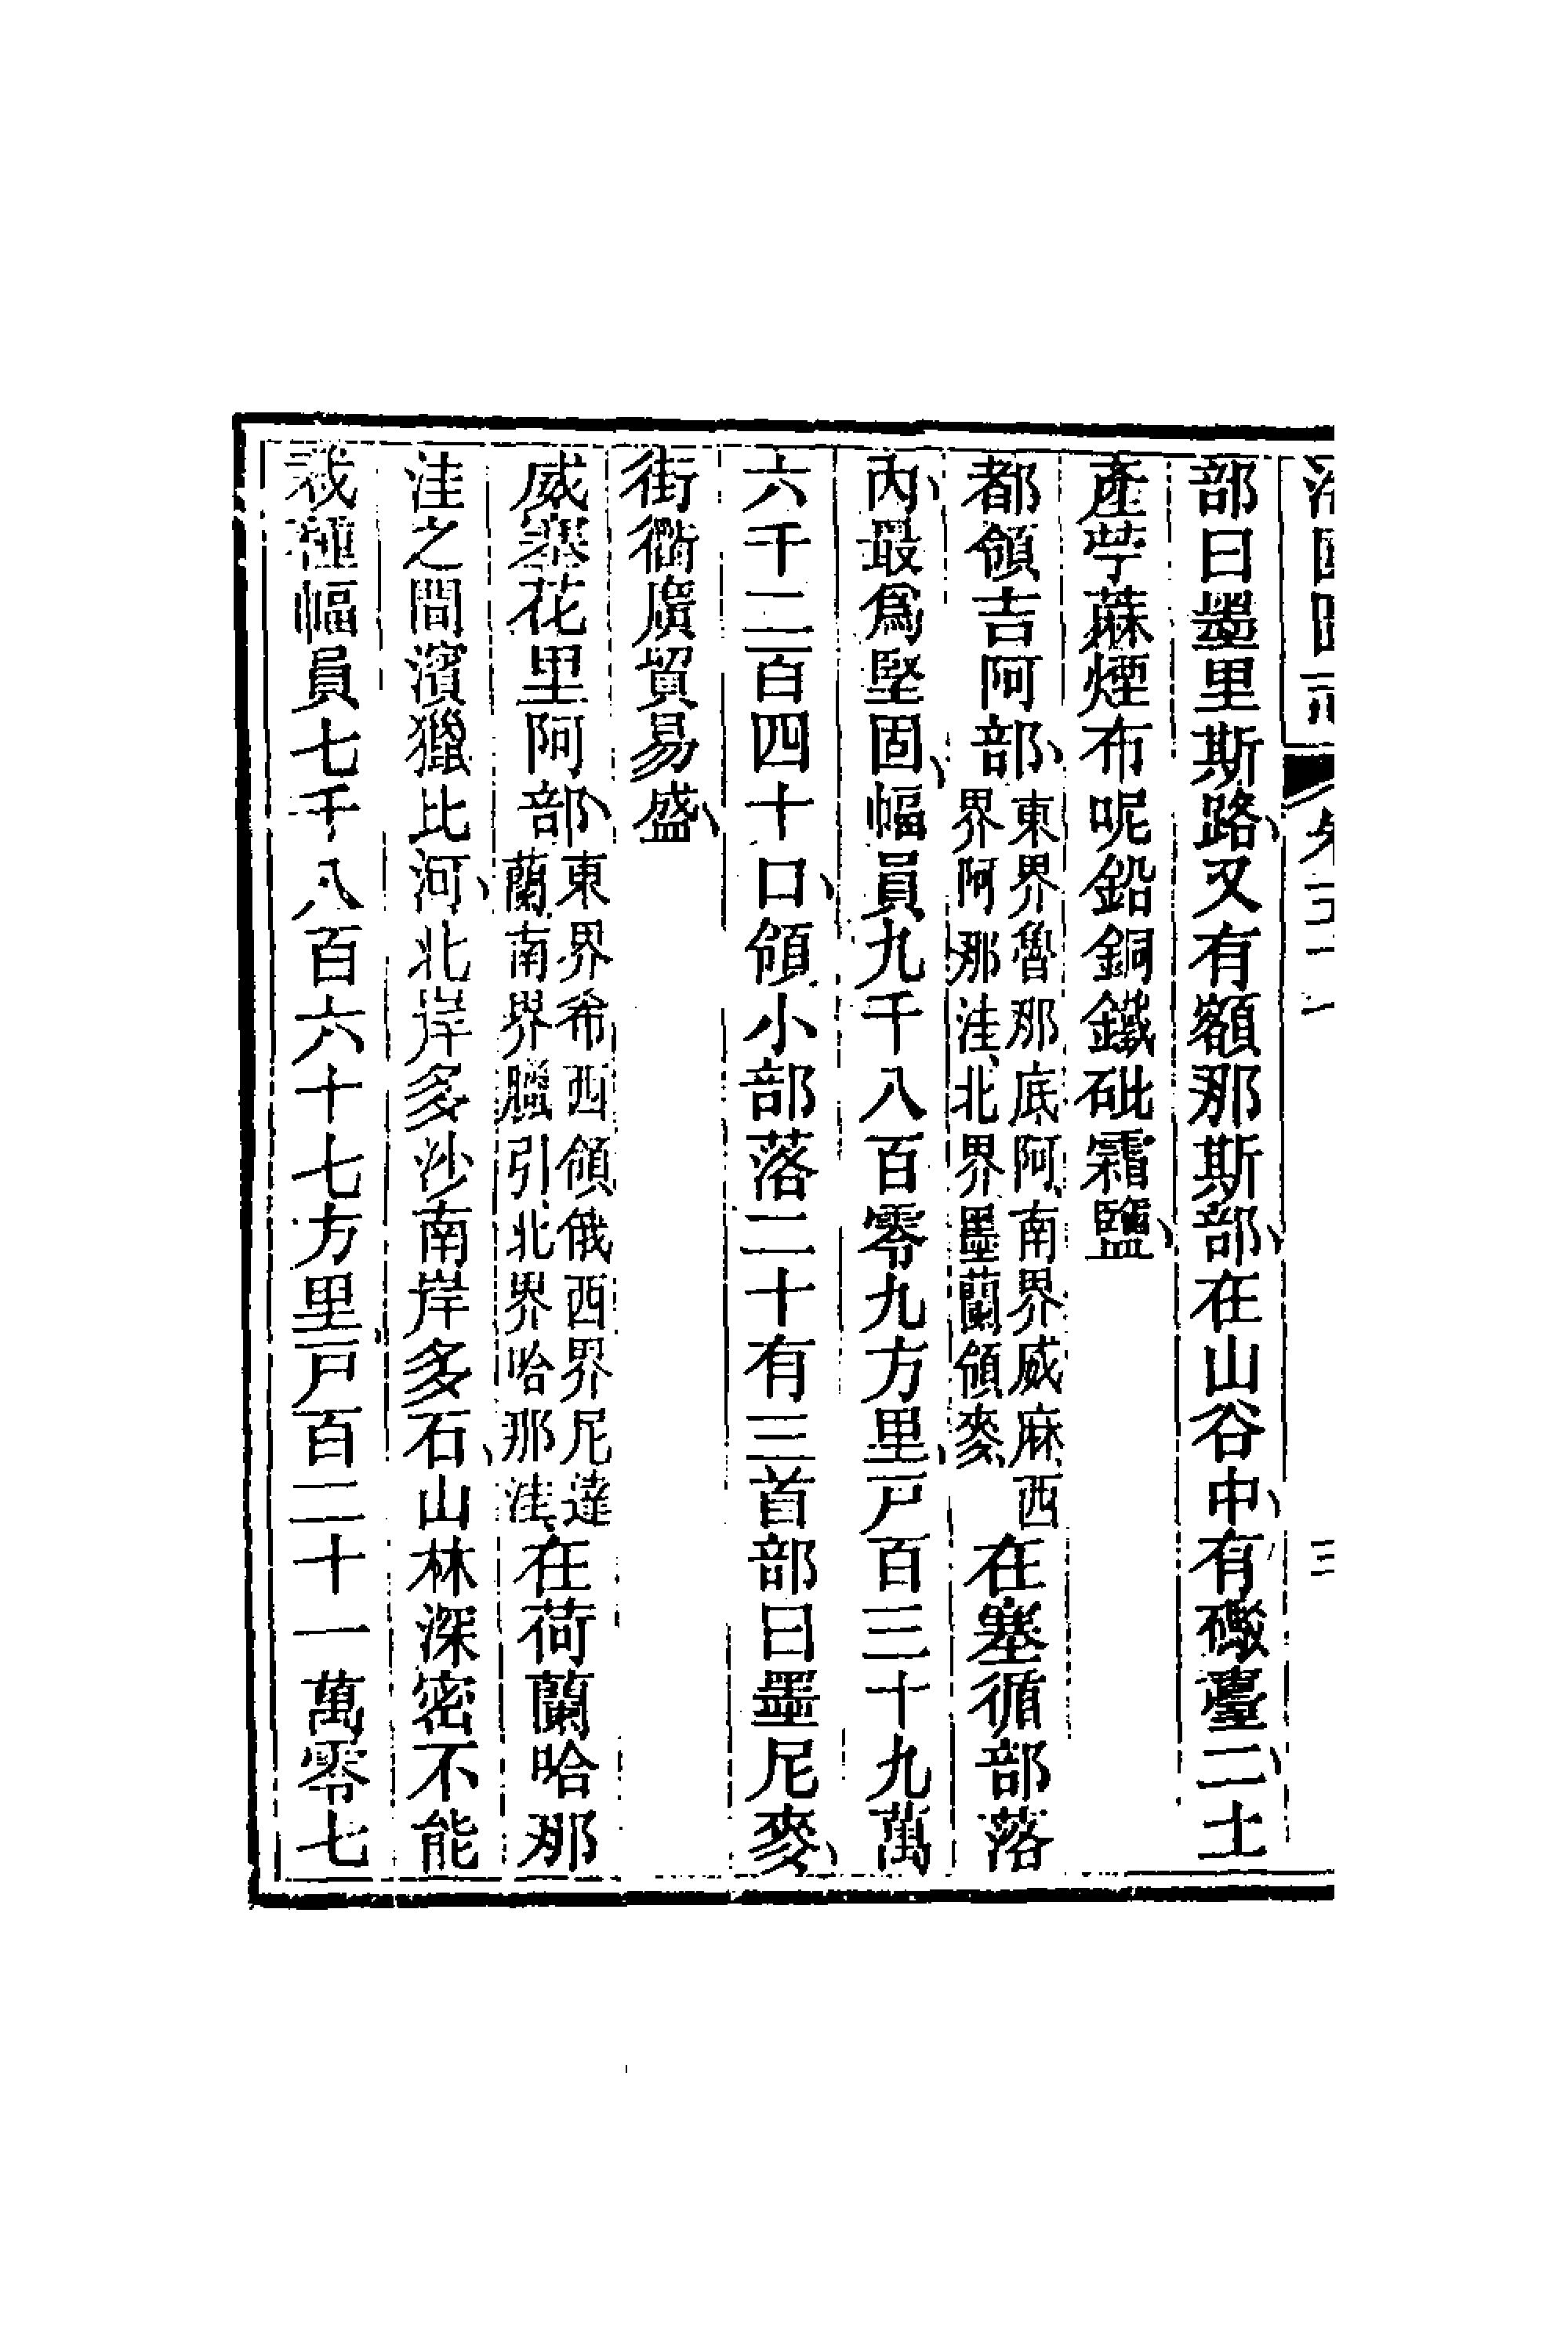 海國圖志 卷五十一 三
部曰墨里斯路、又有額那斯部、在山谷中、有礮臺二、土
產苧蔴煙布呢鉛銅鐵砒霜鹽、
都領吉阿部、東界魯那底阿、南界威麻、西界阿那洼、北界墨蘭領麥、在塞循部落
內、最爲堅固、幅員九千八百零九方里、戸百三十九萬
六千二百四十口、領小部落二十有三、首部曰墨尼麥、
街衢廣、貿易盛、
威塞花里阿部、東界希西領俄、西界尼達蘭、南界臘引、北界哈那洼、在荷蘭哈那
洼之間、濱獵比河、北岸多沙、南岸多石、山林深密、不能
栽種、幅員七千八百六十七方里、戸百二十一萬零七